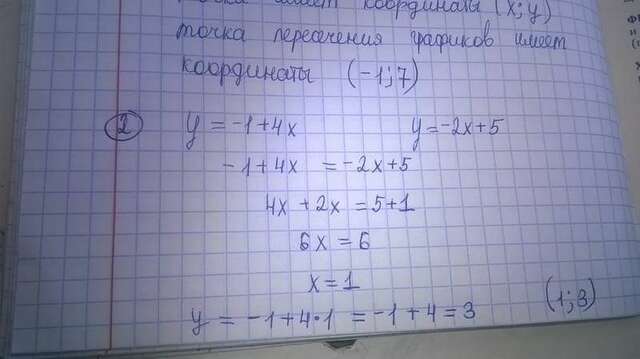 имеет координаты (x; y)
точка пересечения графиков имеет
координаты (-1; 7)
② y = -1+4x y = -2x+5
-1+4x = -2x+5
4x+2x = 5+1
6x = 6
x = 1
y = -1+4·1 = -1+4 = 3 (1; 3)